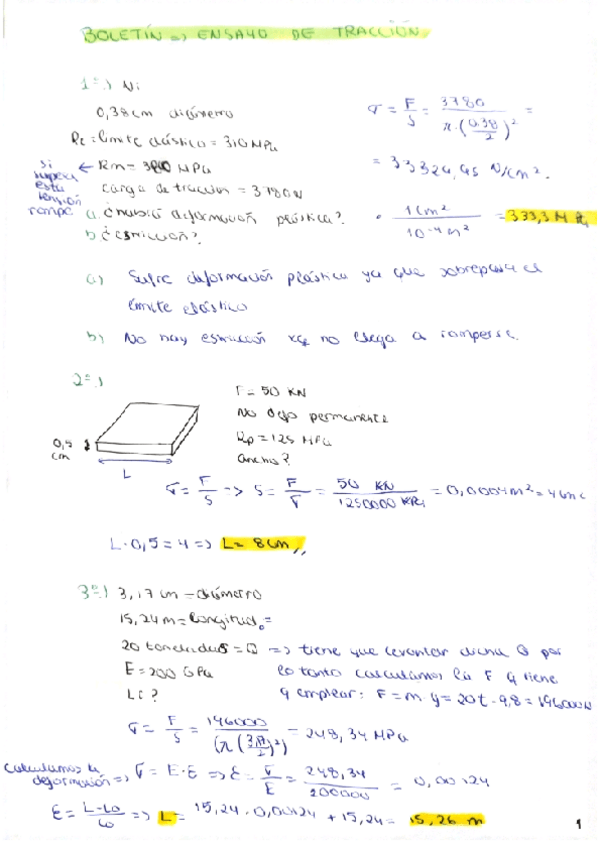 BOLETÍN => ENSAYO DE TRACCIÓN
1º) Ni
0,38 cm diámetro
Re = límite elástico = 310 MPa
Rm = 380 MPa
si supera esta tensión rompe
carga de tracción = 3780 N
a. ¿habrá deformación plástica?
b. ¿estricción?
σ = F/S = 3780 / π·(0,38/2)² =
= 33324,45 N/cm².
· 1cm² / 10⁻⁴ m² = 333,3 MPa
a) Sufre deformación plástica ya que sobrepasa el
límite elástico
b) No hay estricción xq no llega a romperse.
2º)
F = 50 KN
No defo permanente
Rp = 125 MPa
ancho?
0,5 cm
L
σ = F/S => S = F/σ = 50 KN / 125000 KPa = 0,0004 m² = 4 cm²
L·0,5 = 4 => L = 8 cm,,
3º) 3,17 cm = diámetro
15,24 m = longitud₀ =
20 toneladas = => tiene que levantar dicha por
E = 200 GPa lo tanto calculamos la F q tiene
L? q emplear: F = m·g = 20t · 9,8 = 196000N
σ = F/S = 196000 / (π(3,17/2)²) = 248,34 MPa
Calculamos la deformación => σ = E·ε => ε = σ/E = 248,34 / 200000 = 0,00124
ε = L-L0/L0 => L = 15,24 · 0,00124 + 15,24 = 15,26 m
1